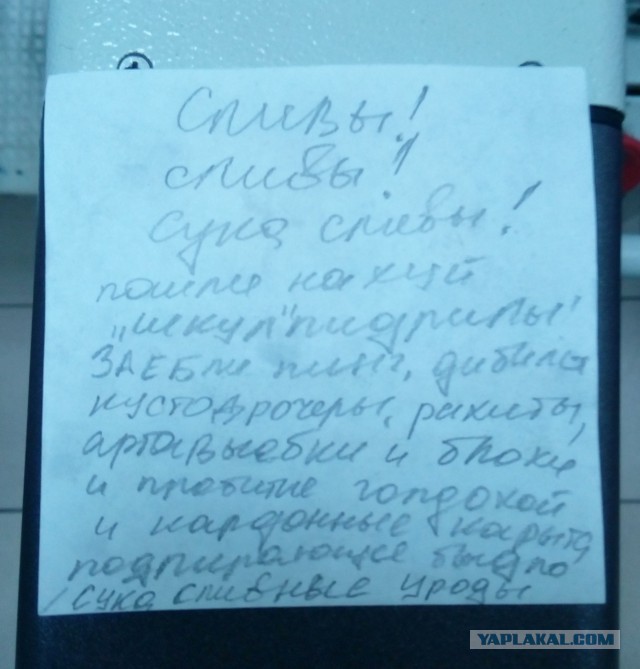 Сливы!
сливы!
Сука сливы!
пошли на хуй
„школ"пидрилы!
ЗАЕБли пинг, дибилы
кустодрочеры, рахиты,
артавыебки и блохи
и пробитие голдохой
и кардонные карыта
подпирающие быдло
сука сливные уроды
YAPLAKAL.COM